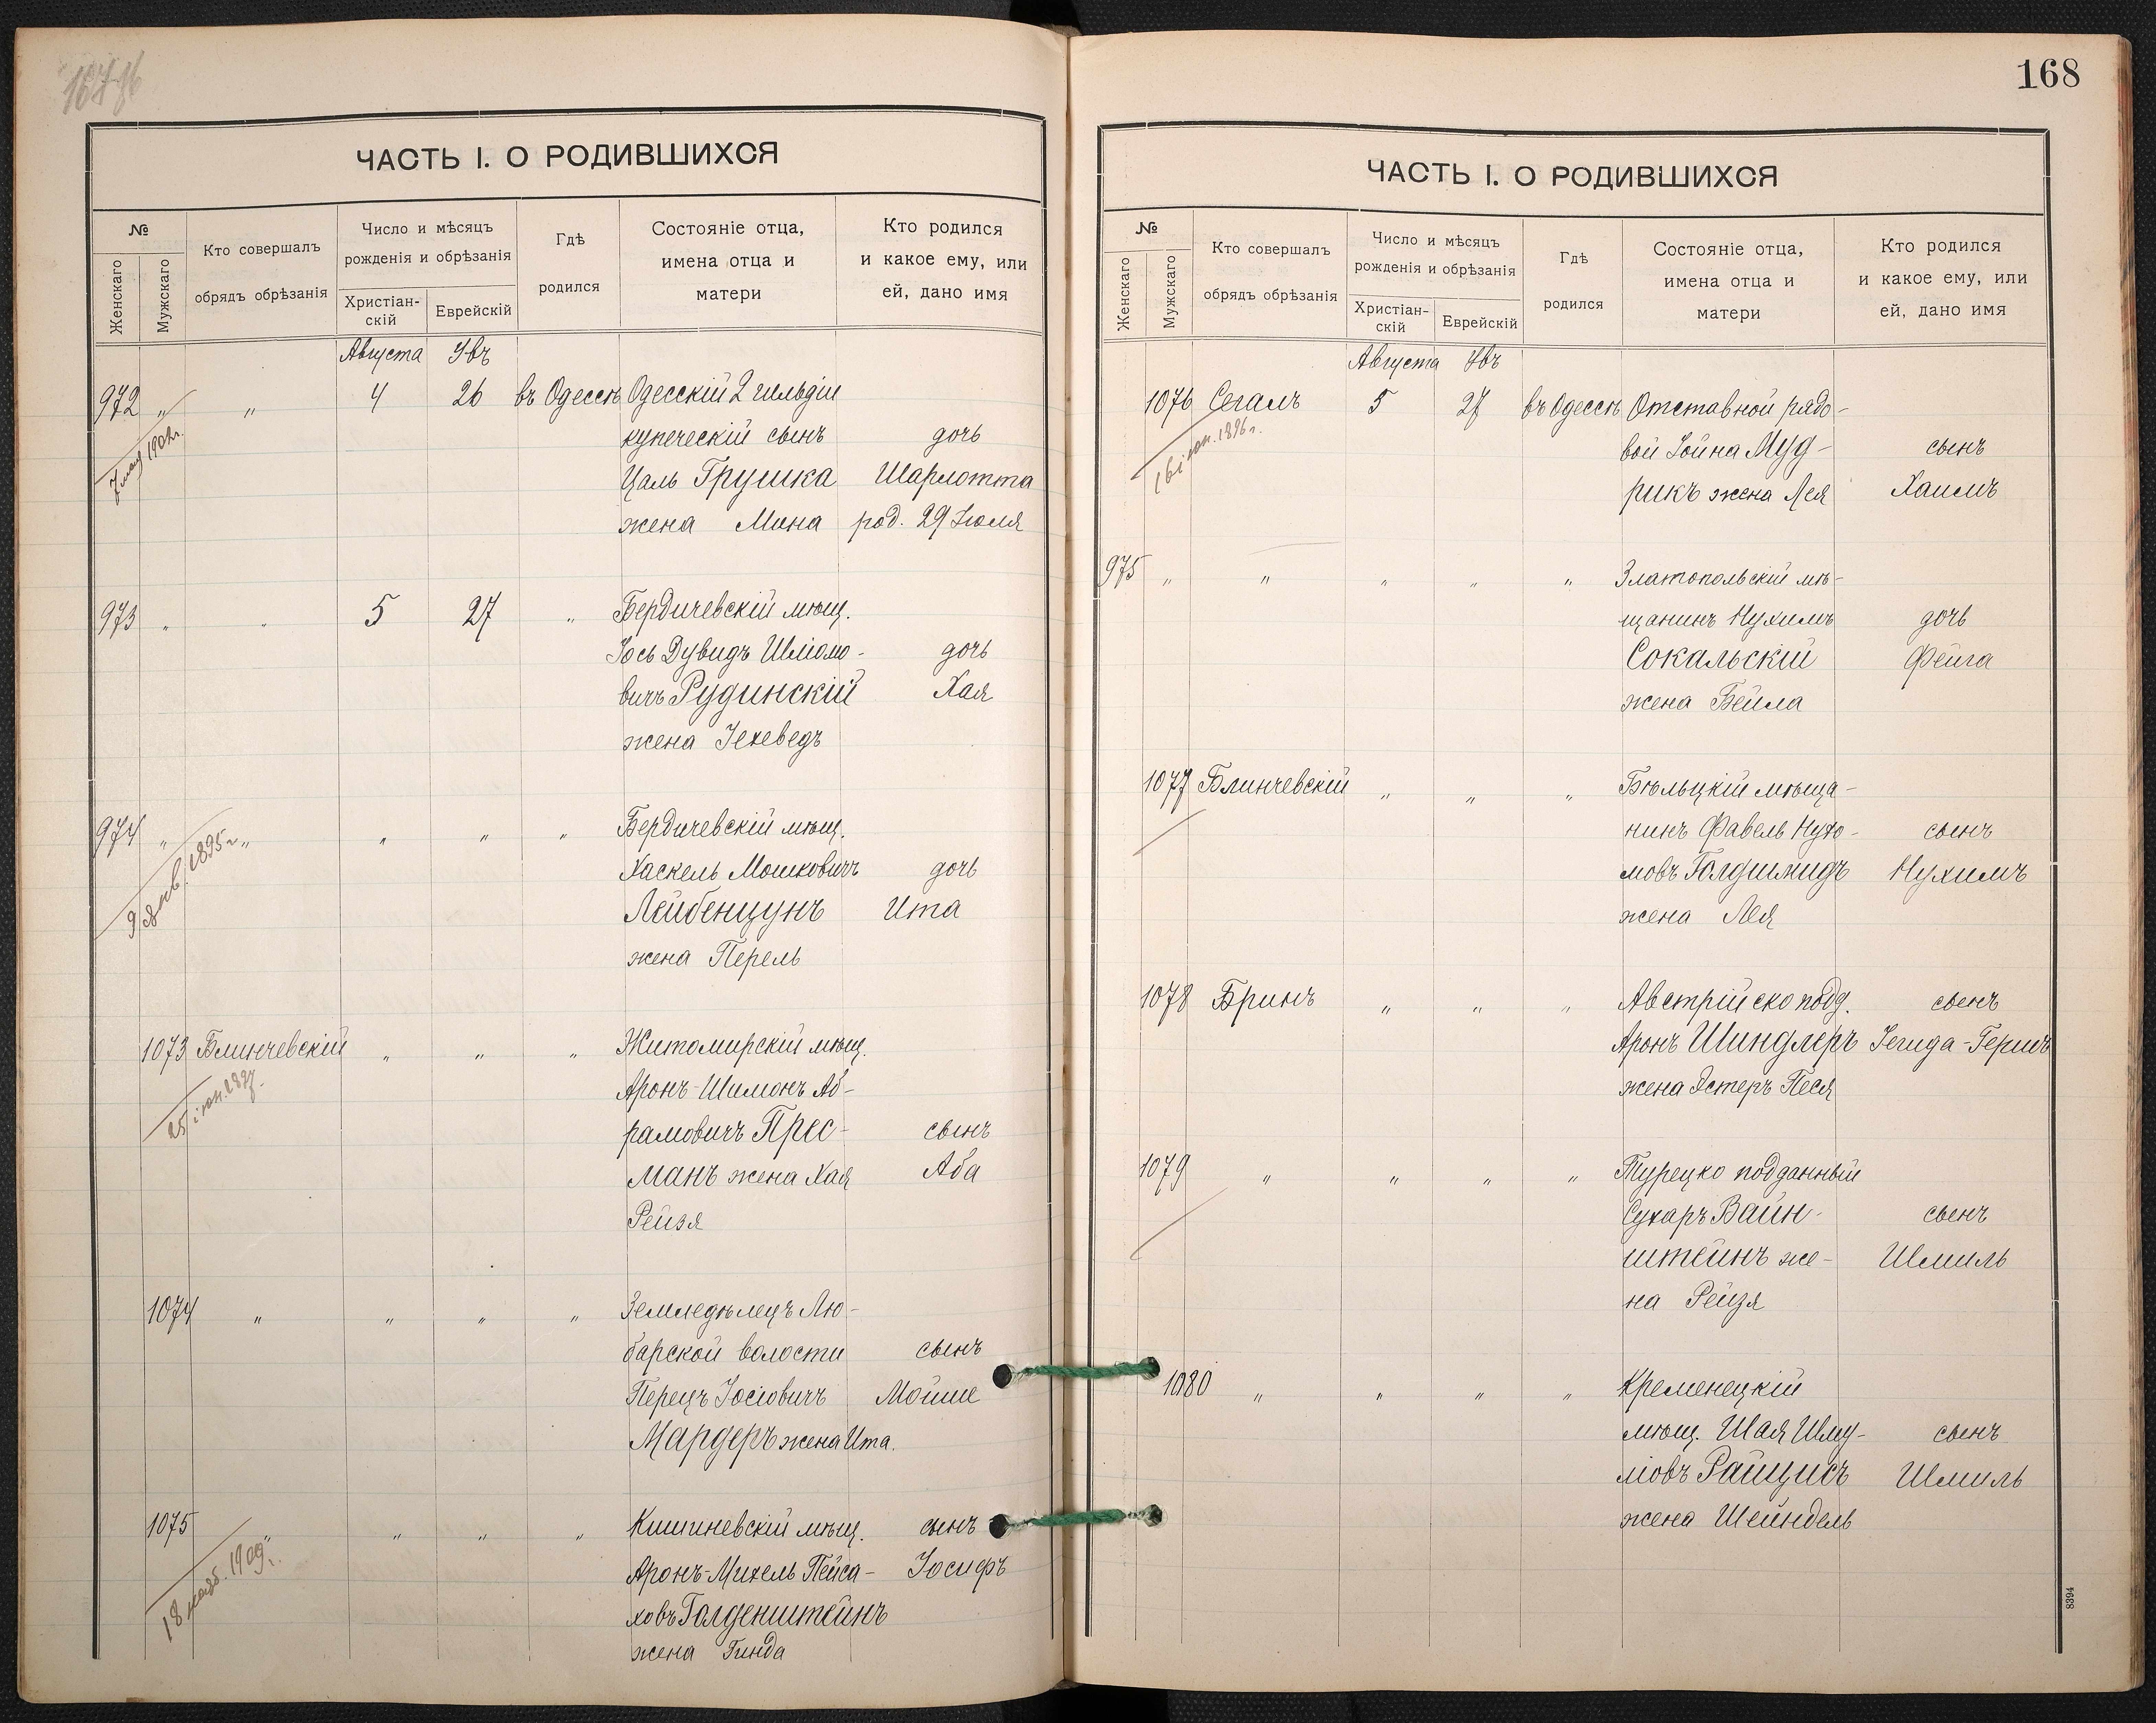 168
ЧАСТЬ I. О РОДИВШИХСЯ
№
Женскаго
Мужскаго
Кто совершалъ
обрядъ обрѣзанія
Число и мѣсяцъ
рожденія и обрѣзанія
Христіан-
скій
Еврейскій
Гдѣ
родился
Состояніе отца,
имена отца и
матери
Кто родился
и какое ему, или
ей, дано имя
Августа
972 „ „ 4 26 въ Одессѣ Одесскій 2 гильдіи
купеческій сынъ дочь
Цаль Грушка Шарлотта
жена Мина род. 29 Іюля
973 „ „ 5 27 „ Бердичевскій мѣщ.
Іось Дувидъ Шліомо- дочь
вичъ Рудинскій Хая
жена Іехеведъ
974 „ „ „ „ „ Бердичевскій мѣщ.
Хаскель Мошковичъ дочь
Лейбенцунъ Ита
жена Перель
1073 Блинчевскій „ „ „ Житомирскій мѣщ.
Аронъ-Шимонъ Аб-
рамовичъ Прес- сынъ
манъ жена Хая Аба
Рейзя
1074 „ „ „ „ Земледѣлецъ Лю-
барской волости сынъ
Перецъ Іосіовичъ Мойше
Мардеръ жена Ита.
1075 „ „ „ „ Кишиневскій мѣщ. сынъ
Аронъ-Михель Пейса- Іосифъ
ховъ Голденштейнъ
жена Гинда
18 нояб. 1909 г.
ЧАСТЬ I. О РОДИВШИХСЯ
№
Женскаго
Мужскаго
Кто совершалъ
обрядъ обрѣзанія
Число и мѣсяцъ
рожденія и обрѣзанія
Христіан-
скій
Еврейскій
Гдѣ
родился
Состояніе отца,
имена отца и
матери
Кто родился
и какое ему, или
ей, дано имя
Августа
1076 Сегалъ 5 27 въ Одессѣ Отставной рядо-
вой Іойна Муд- сынъ
рикъ жена Лея Хаимъ
975 „ „ „ „ „ Златопольскій мѣ-
щанинъ Нухимъ дочь
Сокальскій Фейга
жена Бейла
1077 Блинчевскій „ „ „ Бѣльцкій мѣща-
нинъ Фавель Нухи- сынъ
мовъ Голдшмидъ Нухимъ
жена Лея
1078 Бринъ „ „ „ Австрійско подд. сынъ
Аронъ Шиндлеръ Іегида-Гершъ
жена Эстеръ Песя
1079 „ „ „ „ Турецко подданный
Сухаръ Вайн- сынъ
штейнъ же- Шмиль
на Рейзя
1080 „ „ „ „ Кременецкій
мѣщ. Шая Шму- сынъ
ліовъ Райцисъ Шмиль
жена Шейндель
8394